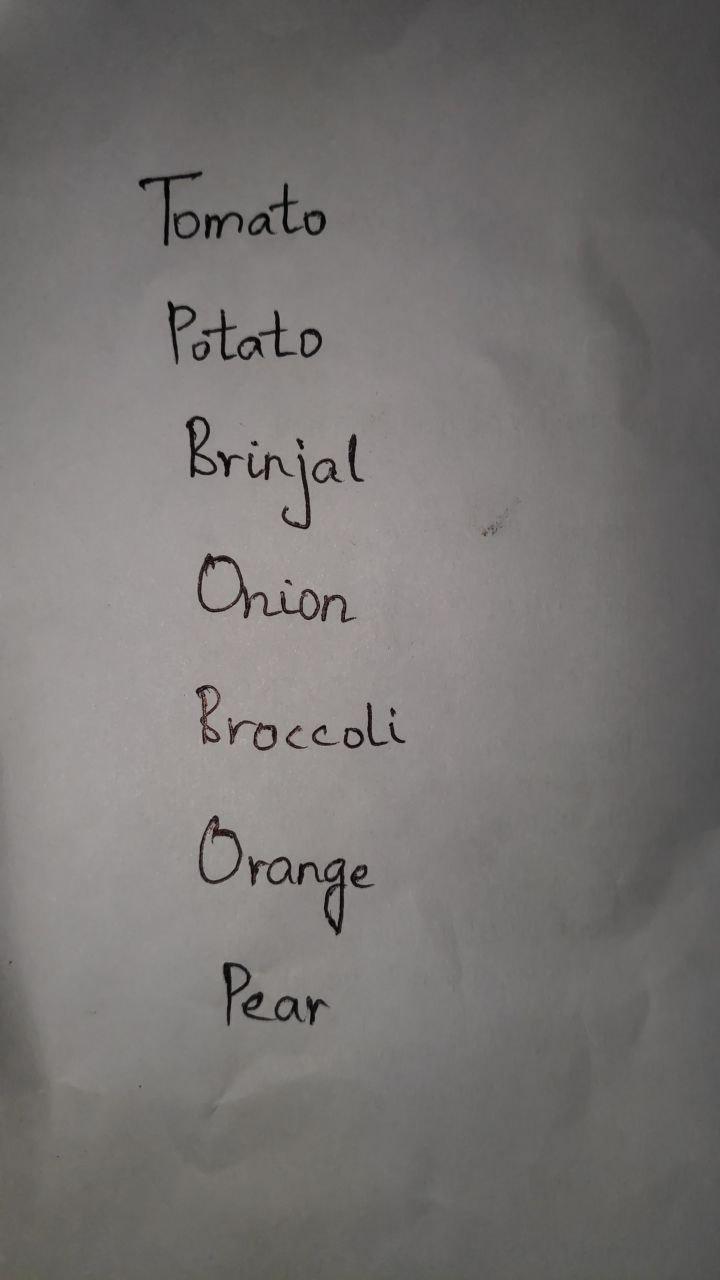 Tomato
Potato
Brinjal
Onion
Broccoli
Orange
Pear